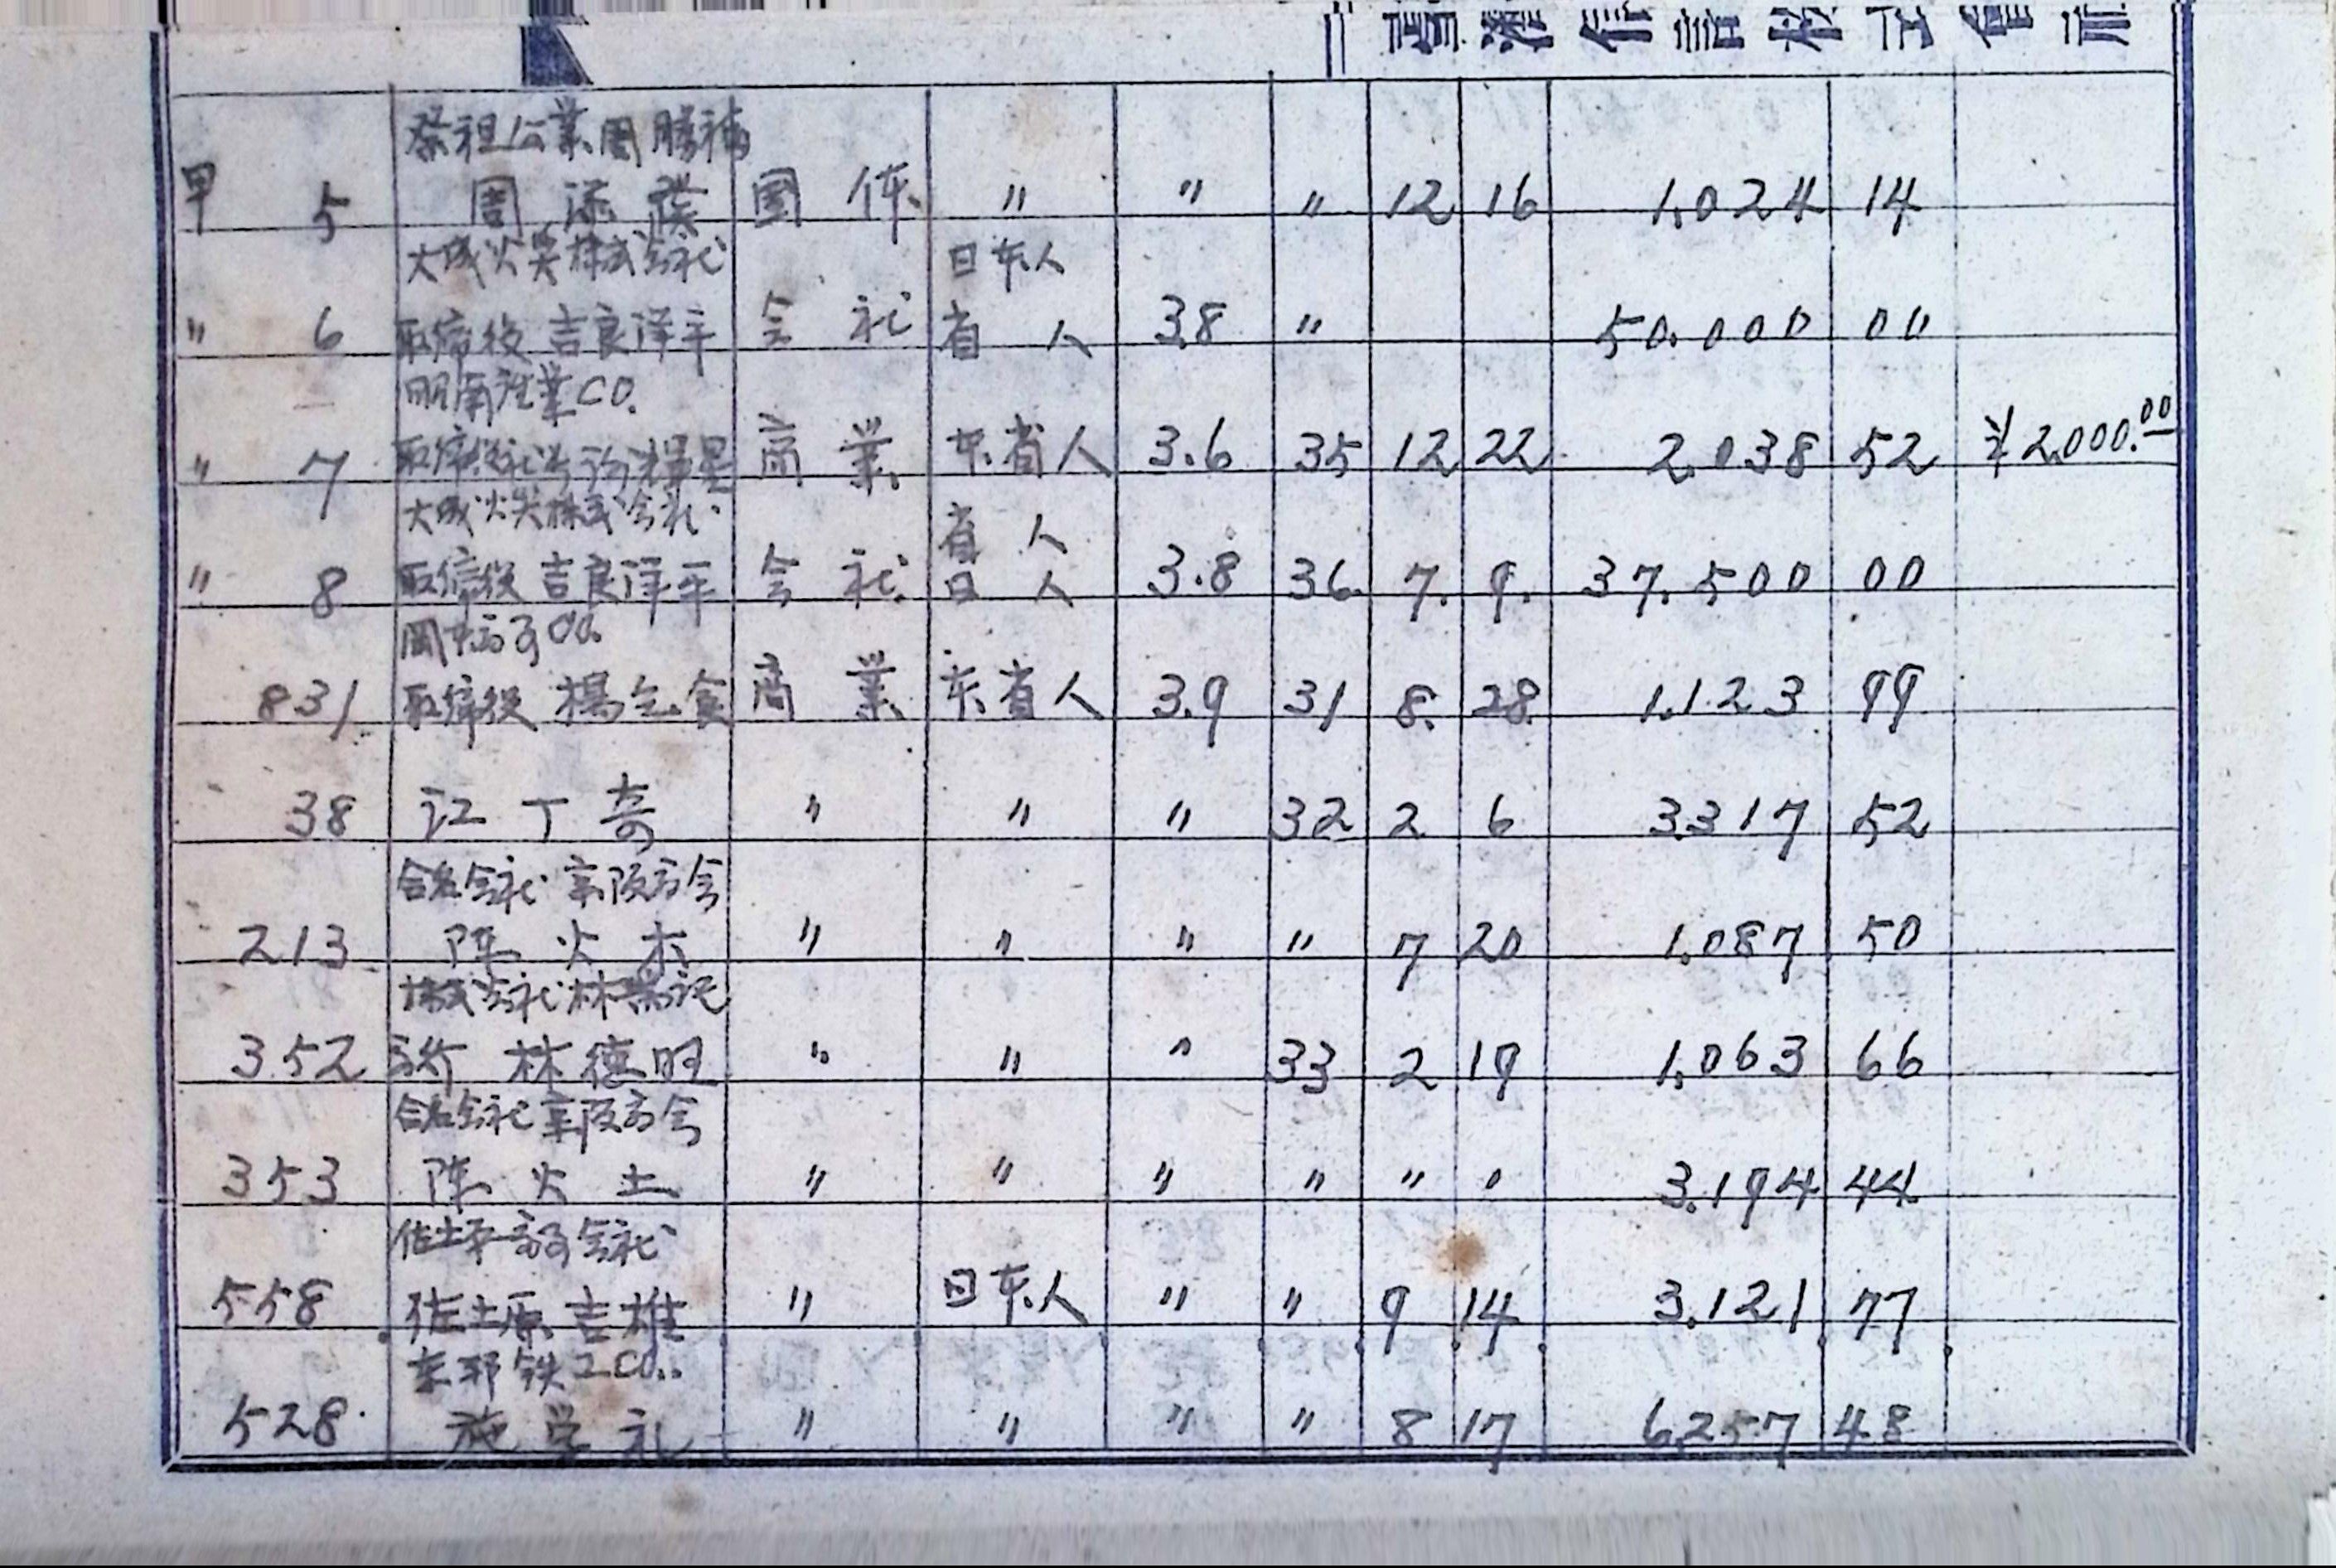 臺灣信託株式會社
祭祖公業周勝福
甲 5 周添㨗 團体 〃 〃 〃 12 16 1,024 14
大成火災株式会社 日本人
〃 6 取締役 吉良澤平 会社 省人 3.8 〃 50.000 00
南産業CO.
〃 7 取締役 商業 本省人 3.6 35 12 22 2.038 52 ¥2,000.00
大成火災株式会社 省人
〃 8 取締役 吉良澤平 会社 日人 3.8 36 7. 9. 37.500 00
CO.
831 取締役 楊 商業 本省人 3.9 31 8. 28 1.123 99
38 江丁奇 〃 〃 〃 32 2 6 3.317 52
合名会社 商会
213 陈火木 〃 〃 〃 〃 7 20 1.087 50
株式会社林
林德旺 352 〃 〃 〃 33 2 19 1,063 66
合名会社 商会
353 陈火土 〃 〃 〃 〃 〃 〃 3.194 44
佐土原 会社
558 佐土原吉雄 〃 日本人 〃 〃 9 14 3.121 77
東邦鉄工CO..
528 施学礼 〃 〃 〃 〃 8 17 6,257 48